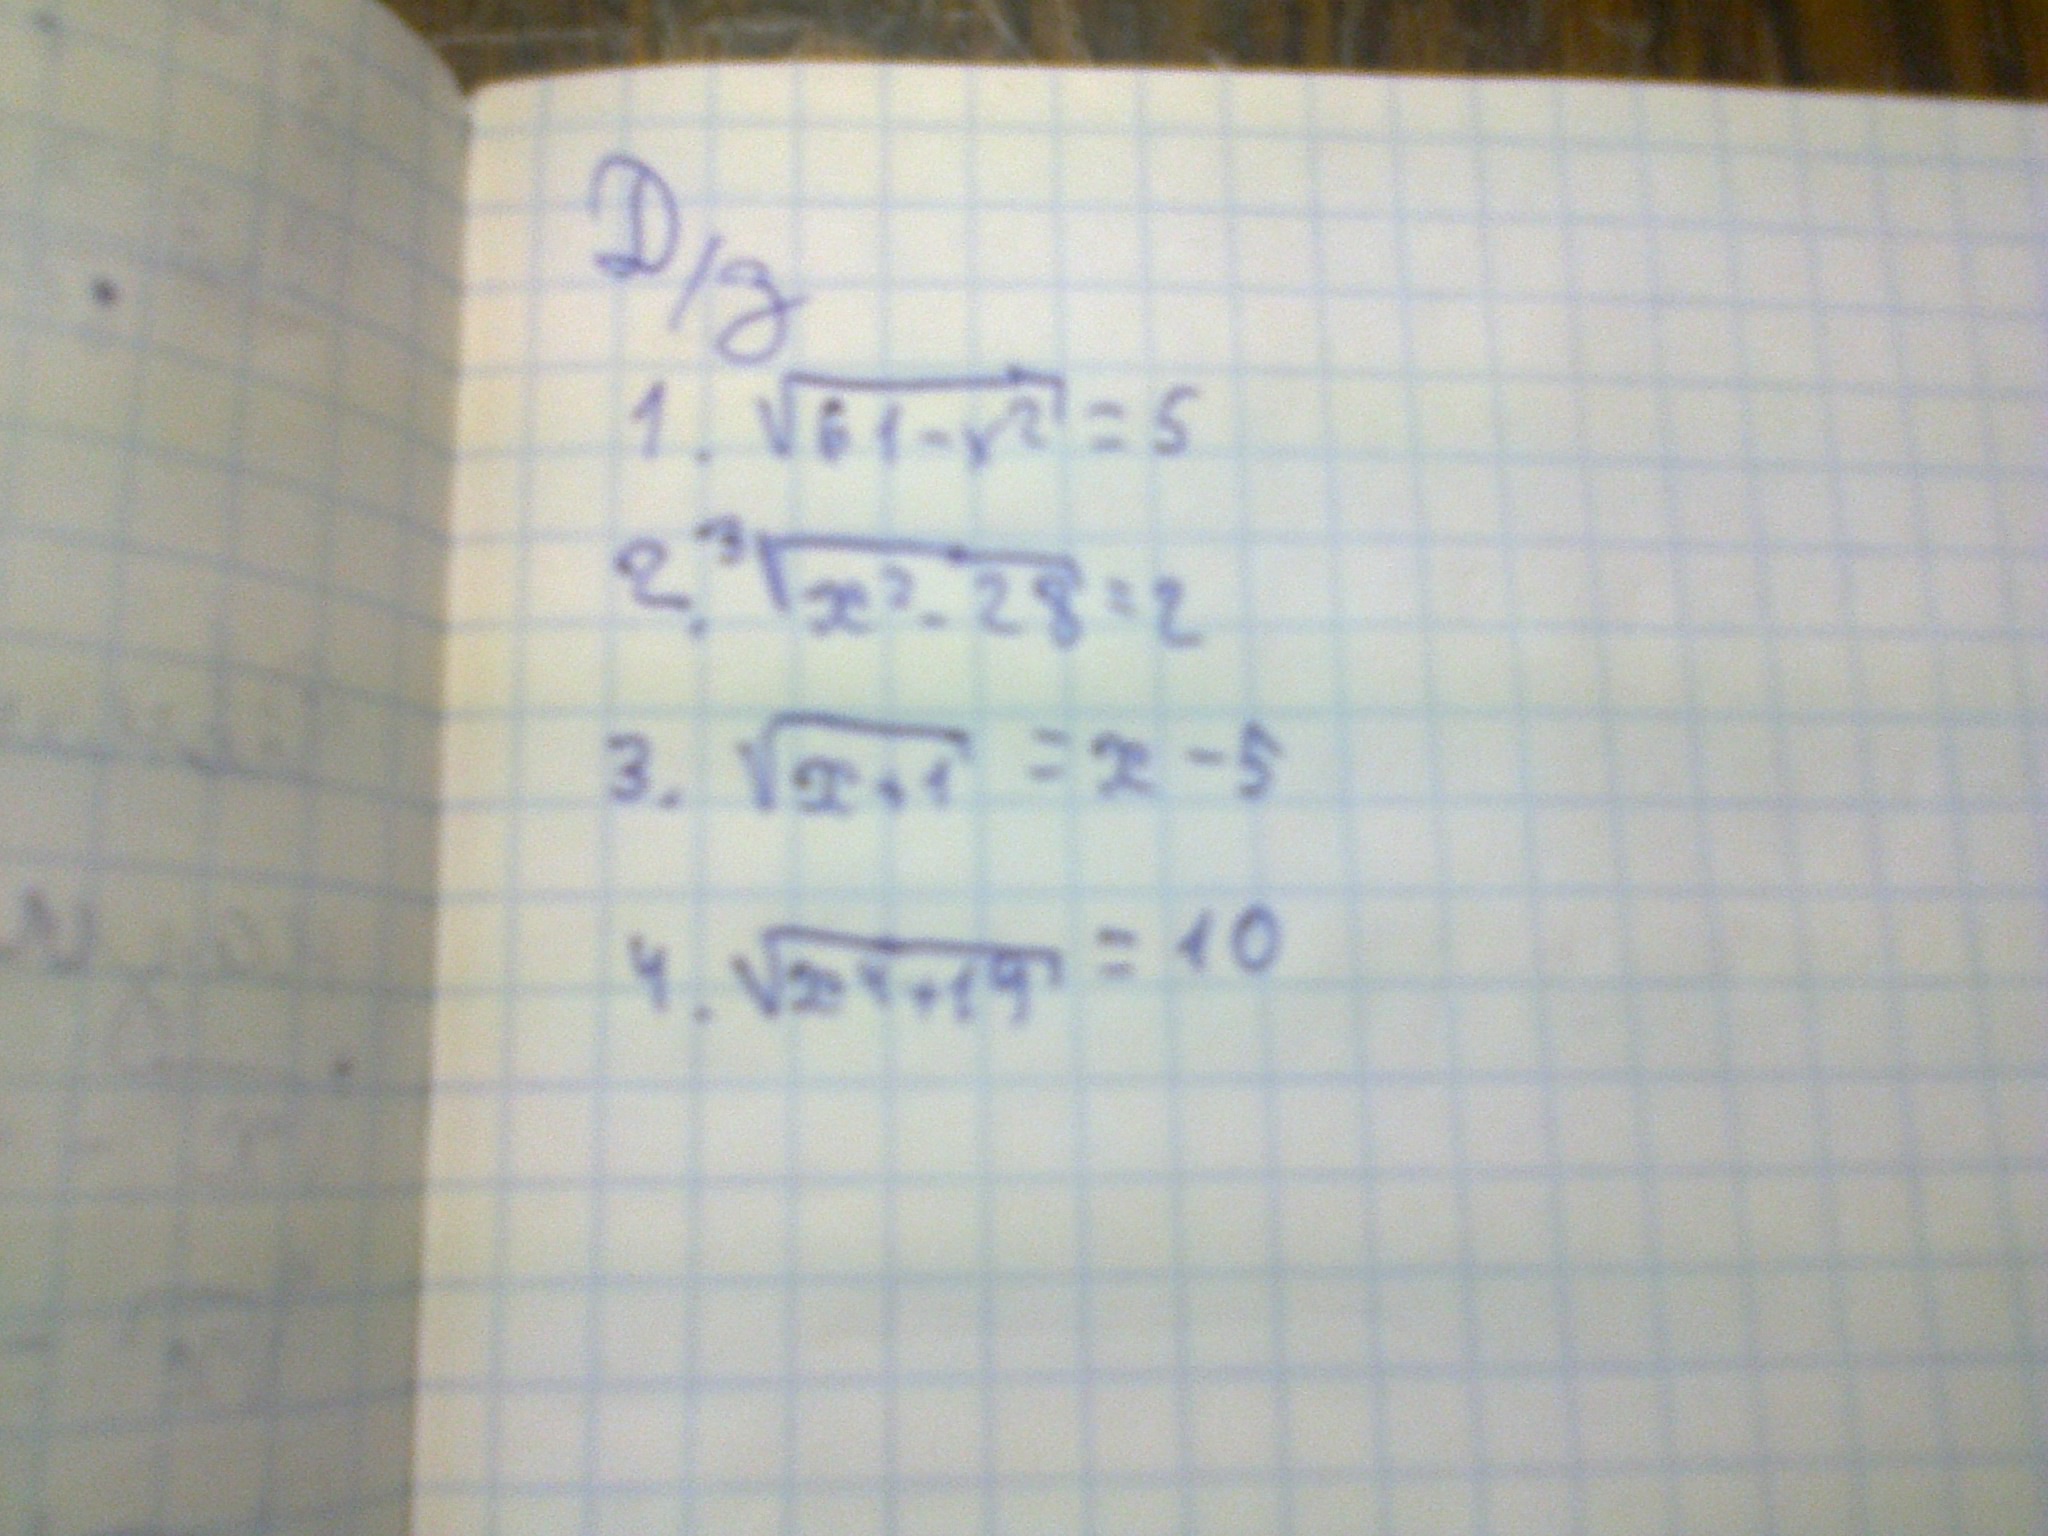 D/з
1. √61-x² = 5
2. ³√x²-28 = 2
3. √x+1 = x-5
4. √x⁴+19 = 10